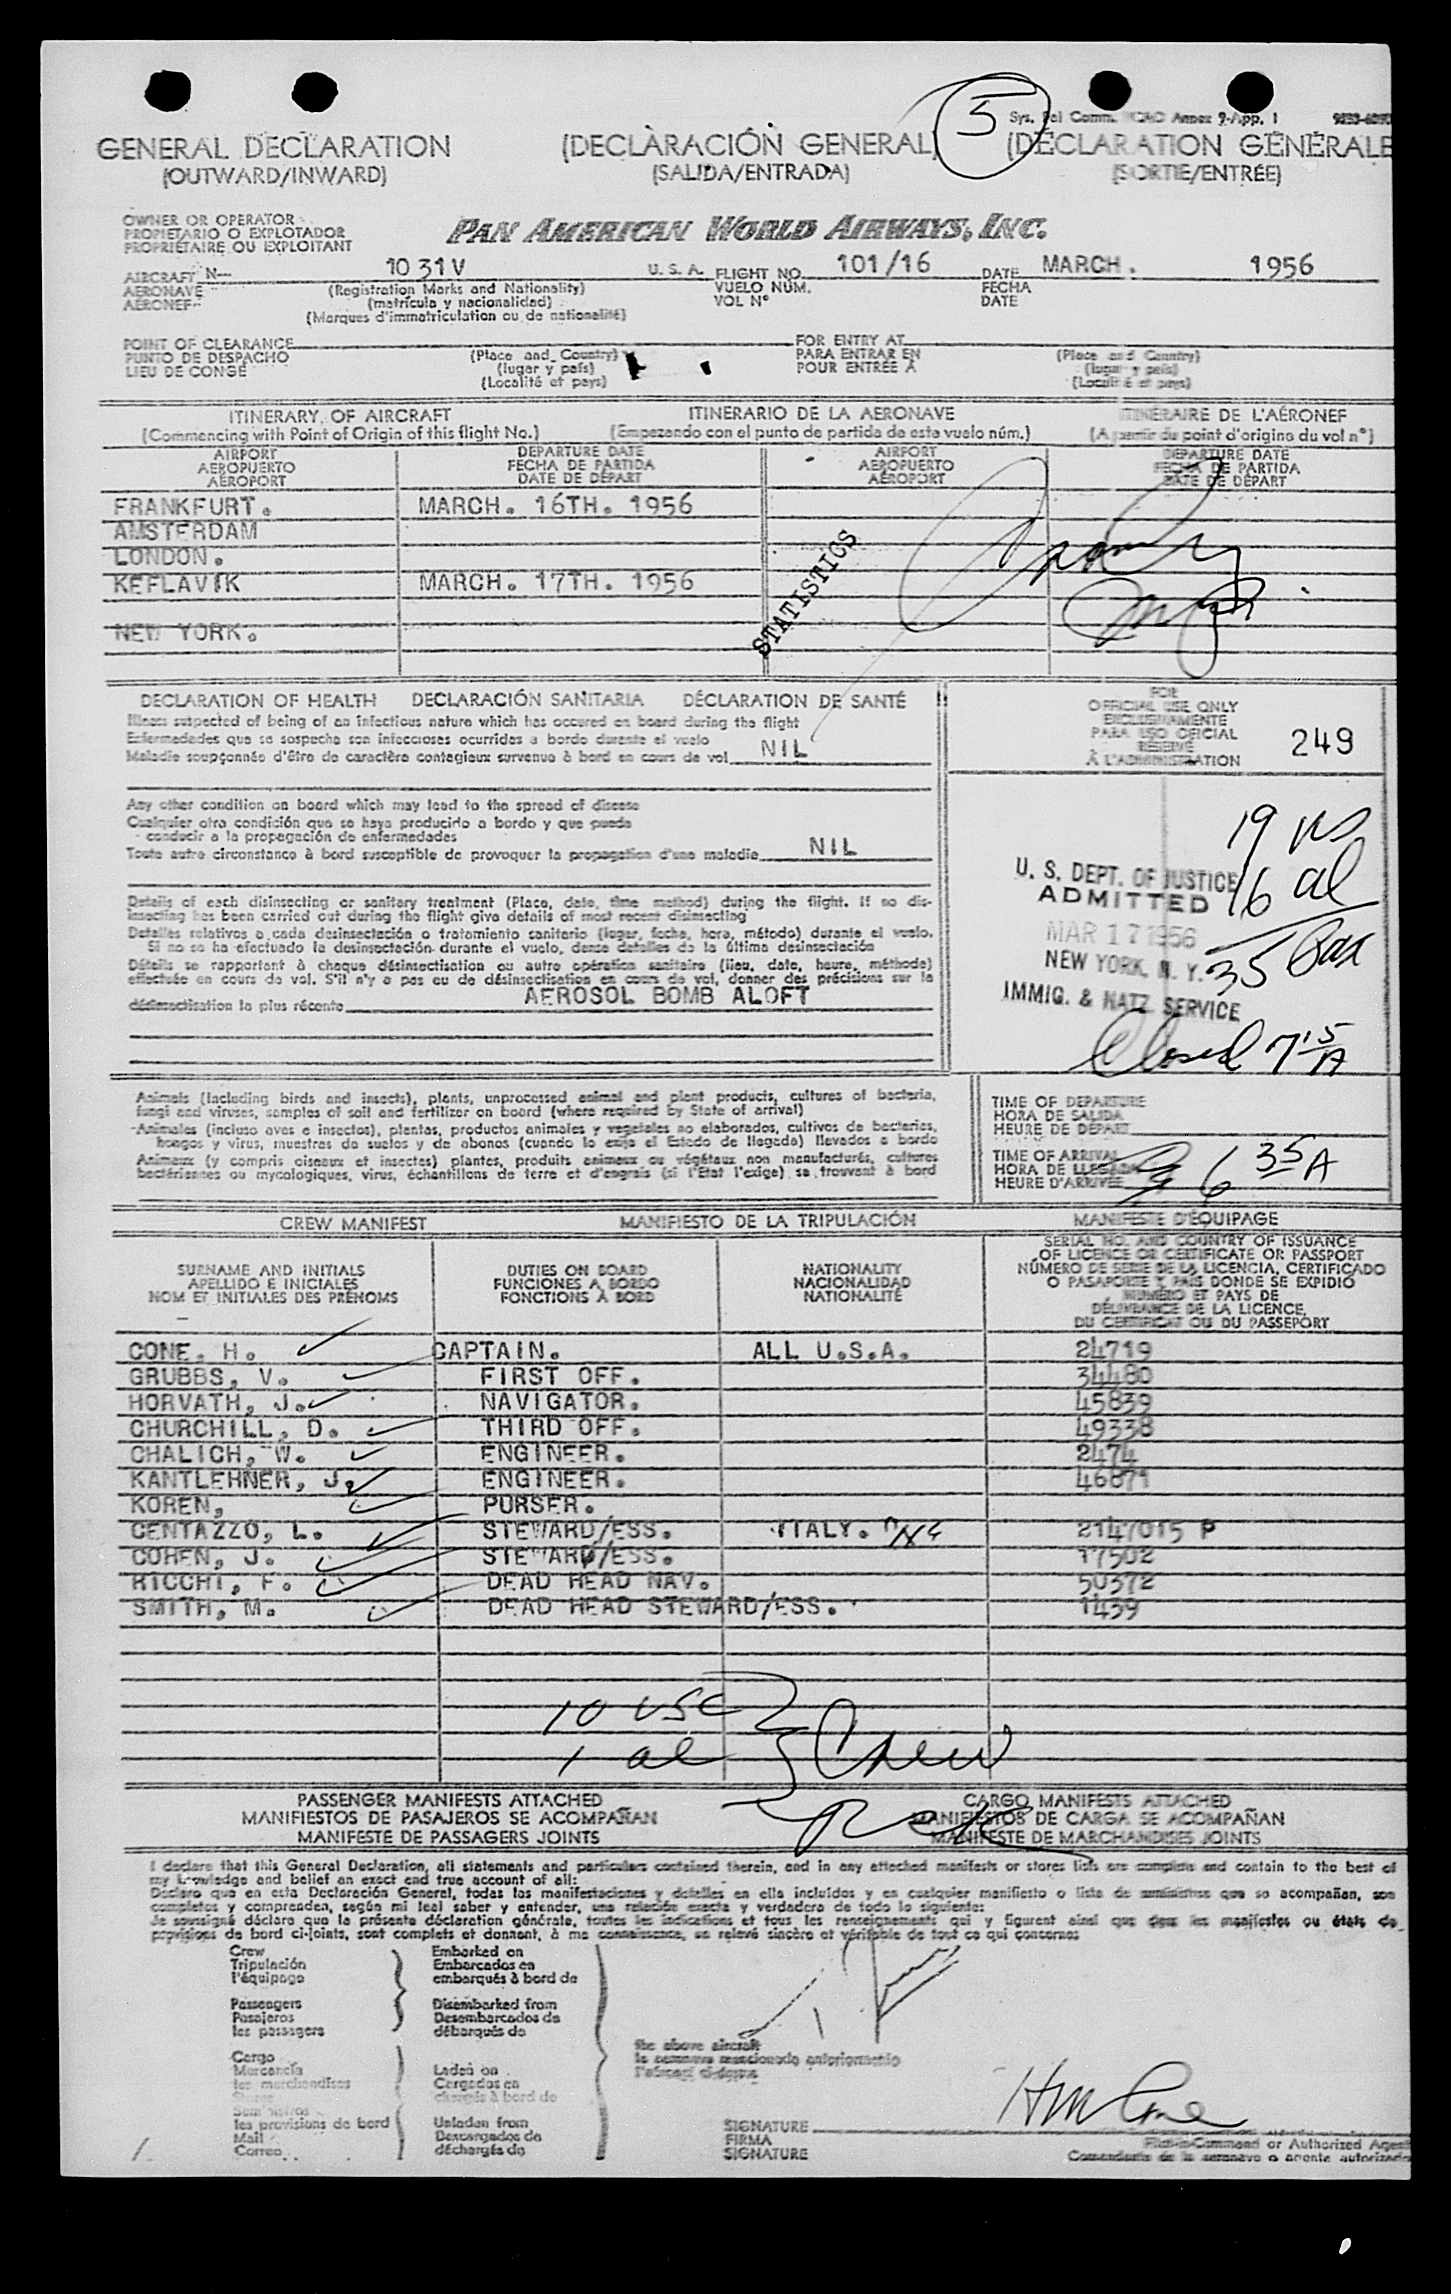 5
Sys. Bel Comm. ICAO Annex 9-App. 1
GENERAL DECLARATION (DECLARACIÓN GENERAL) (DÉCLARATION GÉNÉRALE
(OUTWARD/INWARD) (SALIDA/ENTRADA) (SORTIE/ENTRÉE)
OWNER OR OPERATOR
PROPIETARIO O EXPLOTADOR
PROPRIÉTAIRE OU EXPLOITANT
PAN AMERICAN WORLD AIRWAYS, INC.
AIRCRAFT N— 1031V U. S. A. FLIGHT NO. 101/16 DATE MARCH. 1956
AERONAVE (Registration Marks and Nationality) VUELO NÚM. FECHA
AÉRONEF (matrícula y nacionalidad) VOL Nº DATE
(Marques d'immatriculation ou de nationalité)
POINT OF CLEARANCE FOR ENTRY AT
PUNTO DE DESPACHO (Place and Country) PARA ENTRAR EN (Place and Country)
LIEU DE CONGÉ (lugar y país) POUR ENTRÉE À (lugar y país)
(Localité et pays) (Localité et pays)
ITINERARY OF AIRCRAFT ITINERARIO DE LA AERONAVE ITINÉRAIRE DE L'AÉRONEF
(Commencing with Point of Origin of this flight No.) (Empezando con el punto de partida de este vuelo núm.) (A partir du point d'origine du vol nº)
AIRPORT DEPARTURE DATE AIRPORT DEPARTURE DATE
AEROPUERTO FECHA DE PARTIDA AEROPUERTO FECHA DE PARTIDA
AÉROPORT DATE DE DÉPART AÉROPORT DATE DE DÉPART
FRANKFURT. MARCH. 16TH. 1956
AMSTERDAM
LONDON.
KEFLAVIK MARCH. 17TH. 1956
NEW YORK.
STATISTICS
DECLARATION OF HEALTH DECLARACIÓN SANITARIA DÉCLARATION DE SANTÉ
Illness suspected of being of an infectious nature which has occured on board during the flight
Enfermedades que se sospecha son infecciosas ocurridas a bordo durante el vuelo
Maladie soupçonnée d'être de caractère contagieux survenue à bord en cours de vol NIL
Any other condition on board which may lead to the spread of disease
Cualquier otra condición que se haya producido a bordo y que pueda
conducir a la propagación de enfermedades
Toute autre circonstance à bord susceptible de provoquer la propagation d'une maladie NIL
Details of each disinsecting or sanitary treatment (Place, date, time method) during the flight. If no dis-
insecting has been carried out during the flight give details of most recent disinsecting
Detalles relativos a cada desinsectación o tratamiento sanitario (lugar, fecha, hora, método) durante el vuelo.
Si no se ha efectuado la desinsectación durante el vuelo, dense detalles de la última desinsectación
Détails se rapportant à chaque désinsectisation ou autre opération sanitaire (lieu, date, heure, méthode)
effectuée en cours de vol. S'il n'y a pas eu de désinsectisation en cours de vol, donner des précisions sur la
désinsectisation la plus récente AEROSOL BOMB ALOFT
FOR
OFFICIAL USE ONLY
EXCLUSIVAMENTE
PARA USO OFICIAL
RÉSERVÉ
À L'ADMINISTRATION
249
19 us
16 al
35 Pax
U. S. DEPT. OF JUSTICE
ADMITTED
MAR 17 1956
NEW YORK, N. Y.
IMMIG. & NATZ. SERVICE
Closed 7 15 A
Animals (including birds and insects), plants, unprocessed animal and plant products, cultures of bacteria,
fungi and viruses, samples of soil and fertilizer on board (where required by State of arrival)
Animales (incluso aves e insectos), plantas, productos animales y vegetales no elaborados, cultivos de bacterias,
hongos y virus, muestras de suelos y de abonos (cuando lo exija el Estado de llegada) llevados a bordo
Animaux (y compris oiseaux et insectes) plantes, produits animaux ou végétaux non manufacturés, cultures
bactériennes ou mycologiques, virus, échantillons de terre et d'engrais (si l'État l'exige) se trouvant à bord
TIME OF DEPARTURE
HORA DE SALIDA
HEURE DE DÉPART
TIME OF ARRIVAL
HORA DE LLEGADA
HEURE D'ARRIVÉE
6 35 A
CREW MANIFEST MANIFIESTO DE LA TRIPULACIÓN MANIFESTE D'ÉQUIPAGE
SURNAME AND INITIALS
APELLIDO E INICIALES
NOM ET INITIALES DES PRÉNOMS
DUTIES ON BOARD
FUNCIONES A BORDO
FONCTIONS À BORD
NATIONALITY
NACIONALIDAD
NATIONALITÉ
SERIAL NO. AND COUNTRY OF ISSUANCE
OF LICENCE OR CERTIFICATE OR PASSPORT
NÚMERO DE SERIE DE LA LICENCIA, CERTIFICADO
O PASAPORTE Y PAÍS DONDE SE EXPIDIÓ
NUMÉRO ET PAYS DE
DÉLIVRANCE DE LA LICENCE,
DU CERTIFICAT OU DU PASSEPORT
CONE. H. CAPTAIN. ALL U.S.A. 24719
GRUBBS, V. FIRST OFF. 34480
HORVATH, J. NAVIGATOR. 45839
CHURCHILL, D. THIRD OFF. 49338
CHALICH, W. ENGINEER. 2474
KANTLEHNER, J. ENGINEER. 46871
KOREN, PURSER.
CENTAZZO, L. STEWARD/ESS. ITALY. 2147015 P
COHEN, J. STEWARD/ESS. 17502
RICCHI, F. DEAD HEAD NAV. 50372
SMITH, M. DEAD HEAD STEWARD/ESS. 1439
10 USC
1 al
Crew
PASSENGER MANIFESTS ATTACHED CARGO MANIFESTS ATTACHED
MANIFIESTOS DE PASAJEROS SE ACOMPAÑAN MANIFIESTOS DE CARGA SE ACOMPAÑAN
MANIFESTE DE PASSAGERS JOINTS MANIFESTE DE MARCHANDISES JOINTS
I declare that this General Declaration, all statements and particulars contained therein, and in any attached manifests or stores lists are complete and contain to the best of
my knowledge and belief an exact and true account of all:
Declaro que en esta Declaración General, todas las manifestaciones y detalles en ella incluidos y en cualquier manifiesto o lista de suministros que se acompañan, son
completos y comprenden, según mi leal saber y entender, una relación exacta y verdadera de todo lo siguiente:
Je soussigné déclare que la présente déclaration générale, toutes les indications et tous les renseignements qui y figurent ainsi que dans les manifestes ou états de
provisions de bord ci-joints, sont complets et donnent, à ma connaissance, un relevé sincère et véritable de tout ce qui concerne:
Crew Embarked on
Tripulación Embarcados en
l'équipage embarqués à bord de
Passengers Disembarked from
Pasajeros Desembarcados de
les passagers débarqués de
the above aircraft
la aeronave mencionada anteriormente
l'aéronef ci-dessus
Cargo
Mercancía Laden on
les marchandises Cargados en
chargés à bord de
les provisions de bord Unladen from
Mail Descargados de
Correo déchargés de
SIGNATURE
FIRMA
SIGNATURE
HM Cone
Pilot-in-Command or Authorized Agent
Comandante de la aeronave o agente autorizado